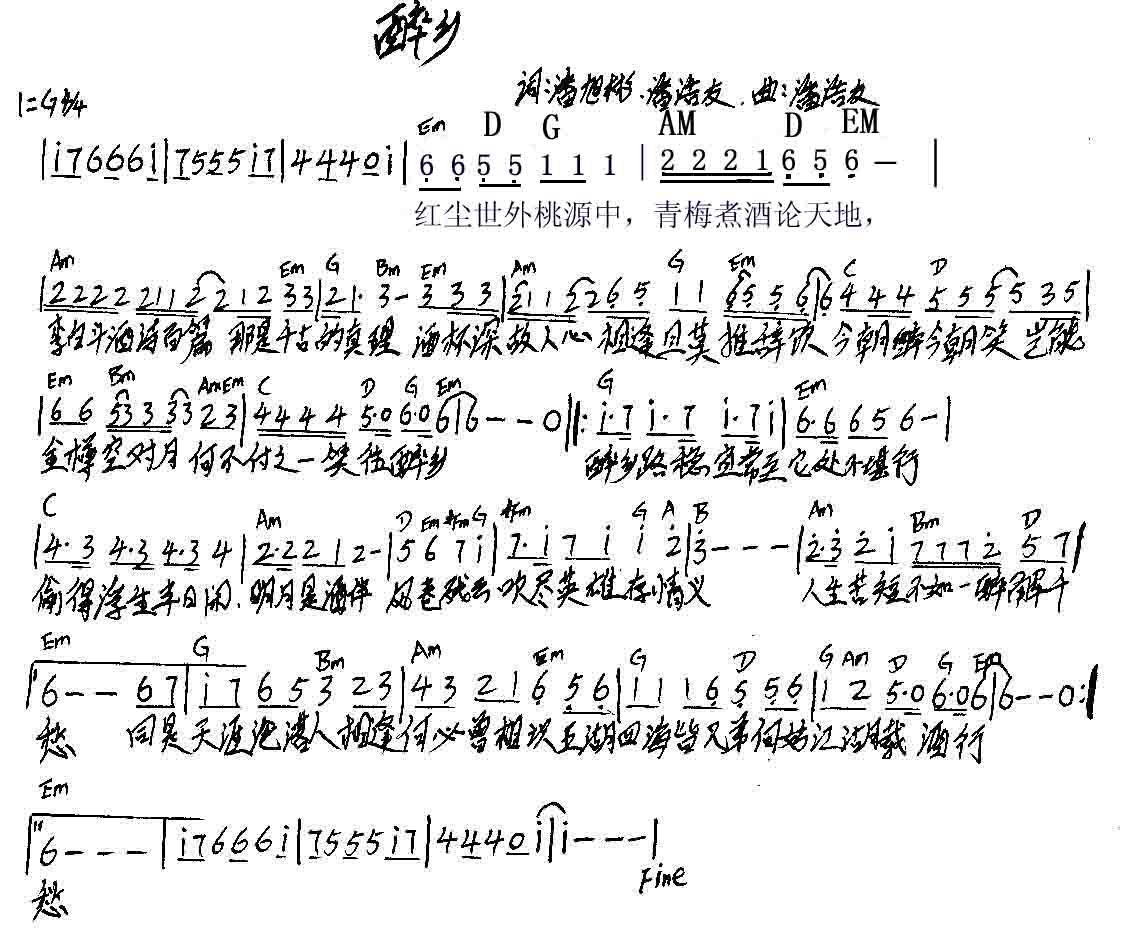 醉乡
词:潘旭彬、潘浩友.曲:潘浩友
1=G 4/4
Em D G AM D EM
|i7666i|7555i7|4440i| 6 6 5 5 1 1 1 1 | 2 2 2 1 6 5 6 — |
红尘世外桃源中，青梅煮酒论天地，
Am Em G Bm Em Am G Em C D
|2222 2112 212 33|21· 3- 333|2112265 11 6556|6444 5555 535|
李白斗酒诗百篇 那是千古的真理 酒杯深故人心 相逢且莫推辞饮 今朝醉今朝笑 岂能
Em Bm Am Em C D G Em G Em
|66 533 33 23|4444 5·0 6·0 6|6--0|: i·7 i·7 i·7i|6·6 656-|
金樽空对月 何不付之一笑往醉乡 醉乡路稳宜常至它处不堪行
C Am D Em #Fm G #Fm G A B Am Bm D
|4·3 4·3 4·3 4|2·2212-|567i|7·i 7i i2|3---|2·3 2i 7772 57|
偷得浮生半日闲.明月是酒伴 风卷残云 吹尽英雄存情义 人生苦短不如一醉解千
Em G Bm Am Em G D G Am D G Em
6-- 67|i7 653 23|43 216 56|1116 5 56|12 5·0 6·06|6--0:|
愁 同是天涯沦落人相逢何必曾相识五湖四海皆兄弟何妨江湖载酒行
Em
6---|i7666i|7555i7|4440i|i---|
愁 Fine